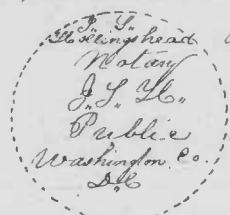 J. S.
Hollingshead
Notary
J. S. H.
Public
Washington Co.
D.C